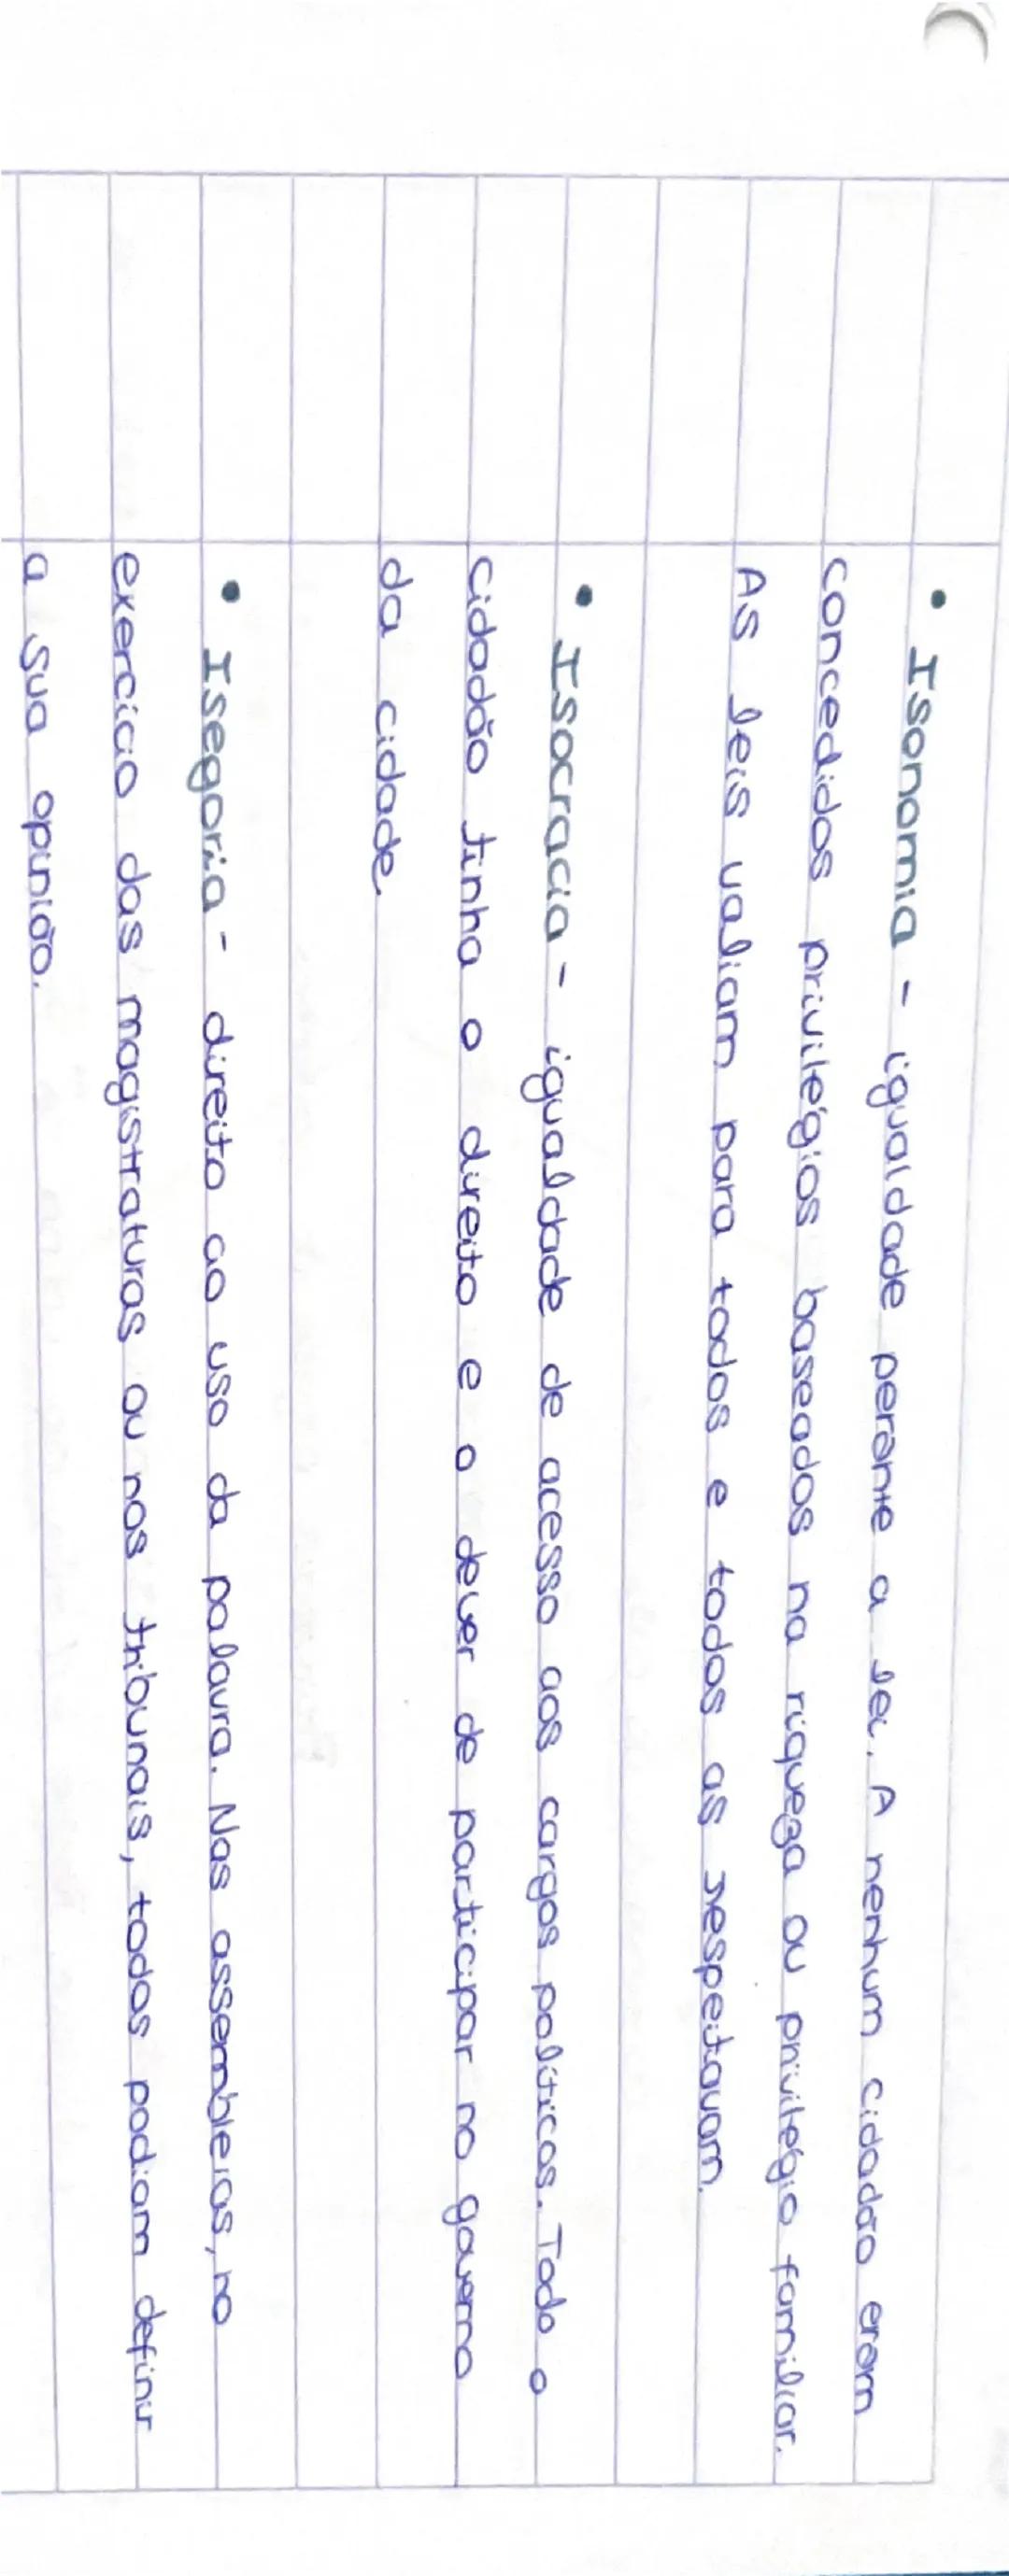 • Isonomia - igualdade perante a lei. A nenhum cidadão eram
concedidos privilégios baseados na riqueza ou privilégio familiar.
As leis valiam para todos e todos as respeitavam.
• Isocracia - igualdade de acesso aos cargos políticos. Todo o
cidadão tinha o direito e o dever de participar no governo
da cidade.
• Isegoria - direito ao uso da palavra. Nas assembleias, no
exercício das magistraturas ou nos tribunais, todos podiam definir
a sua opinião.